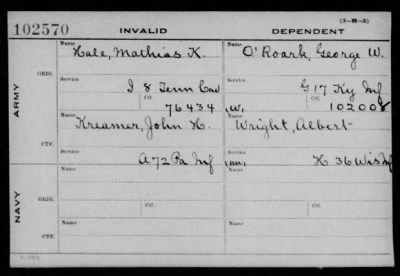 (3-H-5)
102570 INVALID DEPENDENT
Name Hale, Mathias K. Name O'Roark, George W.
ORIG.
Service I 8 Tenn Cav Service G 17 Ky Inf
Ctf. 76434 W. Ctf. 102008
ARMY
Name Kreamer, John H. Name Wright, Albert
CTF.
Service A 72 Pa Inf Service (m). H 36 Wis Inf
Name Name
ORIG.
Service Ctf. Service Ctf.
NAVY
Name Name
CTF.